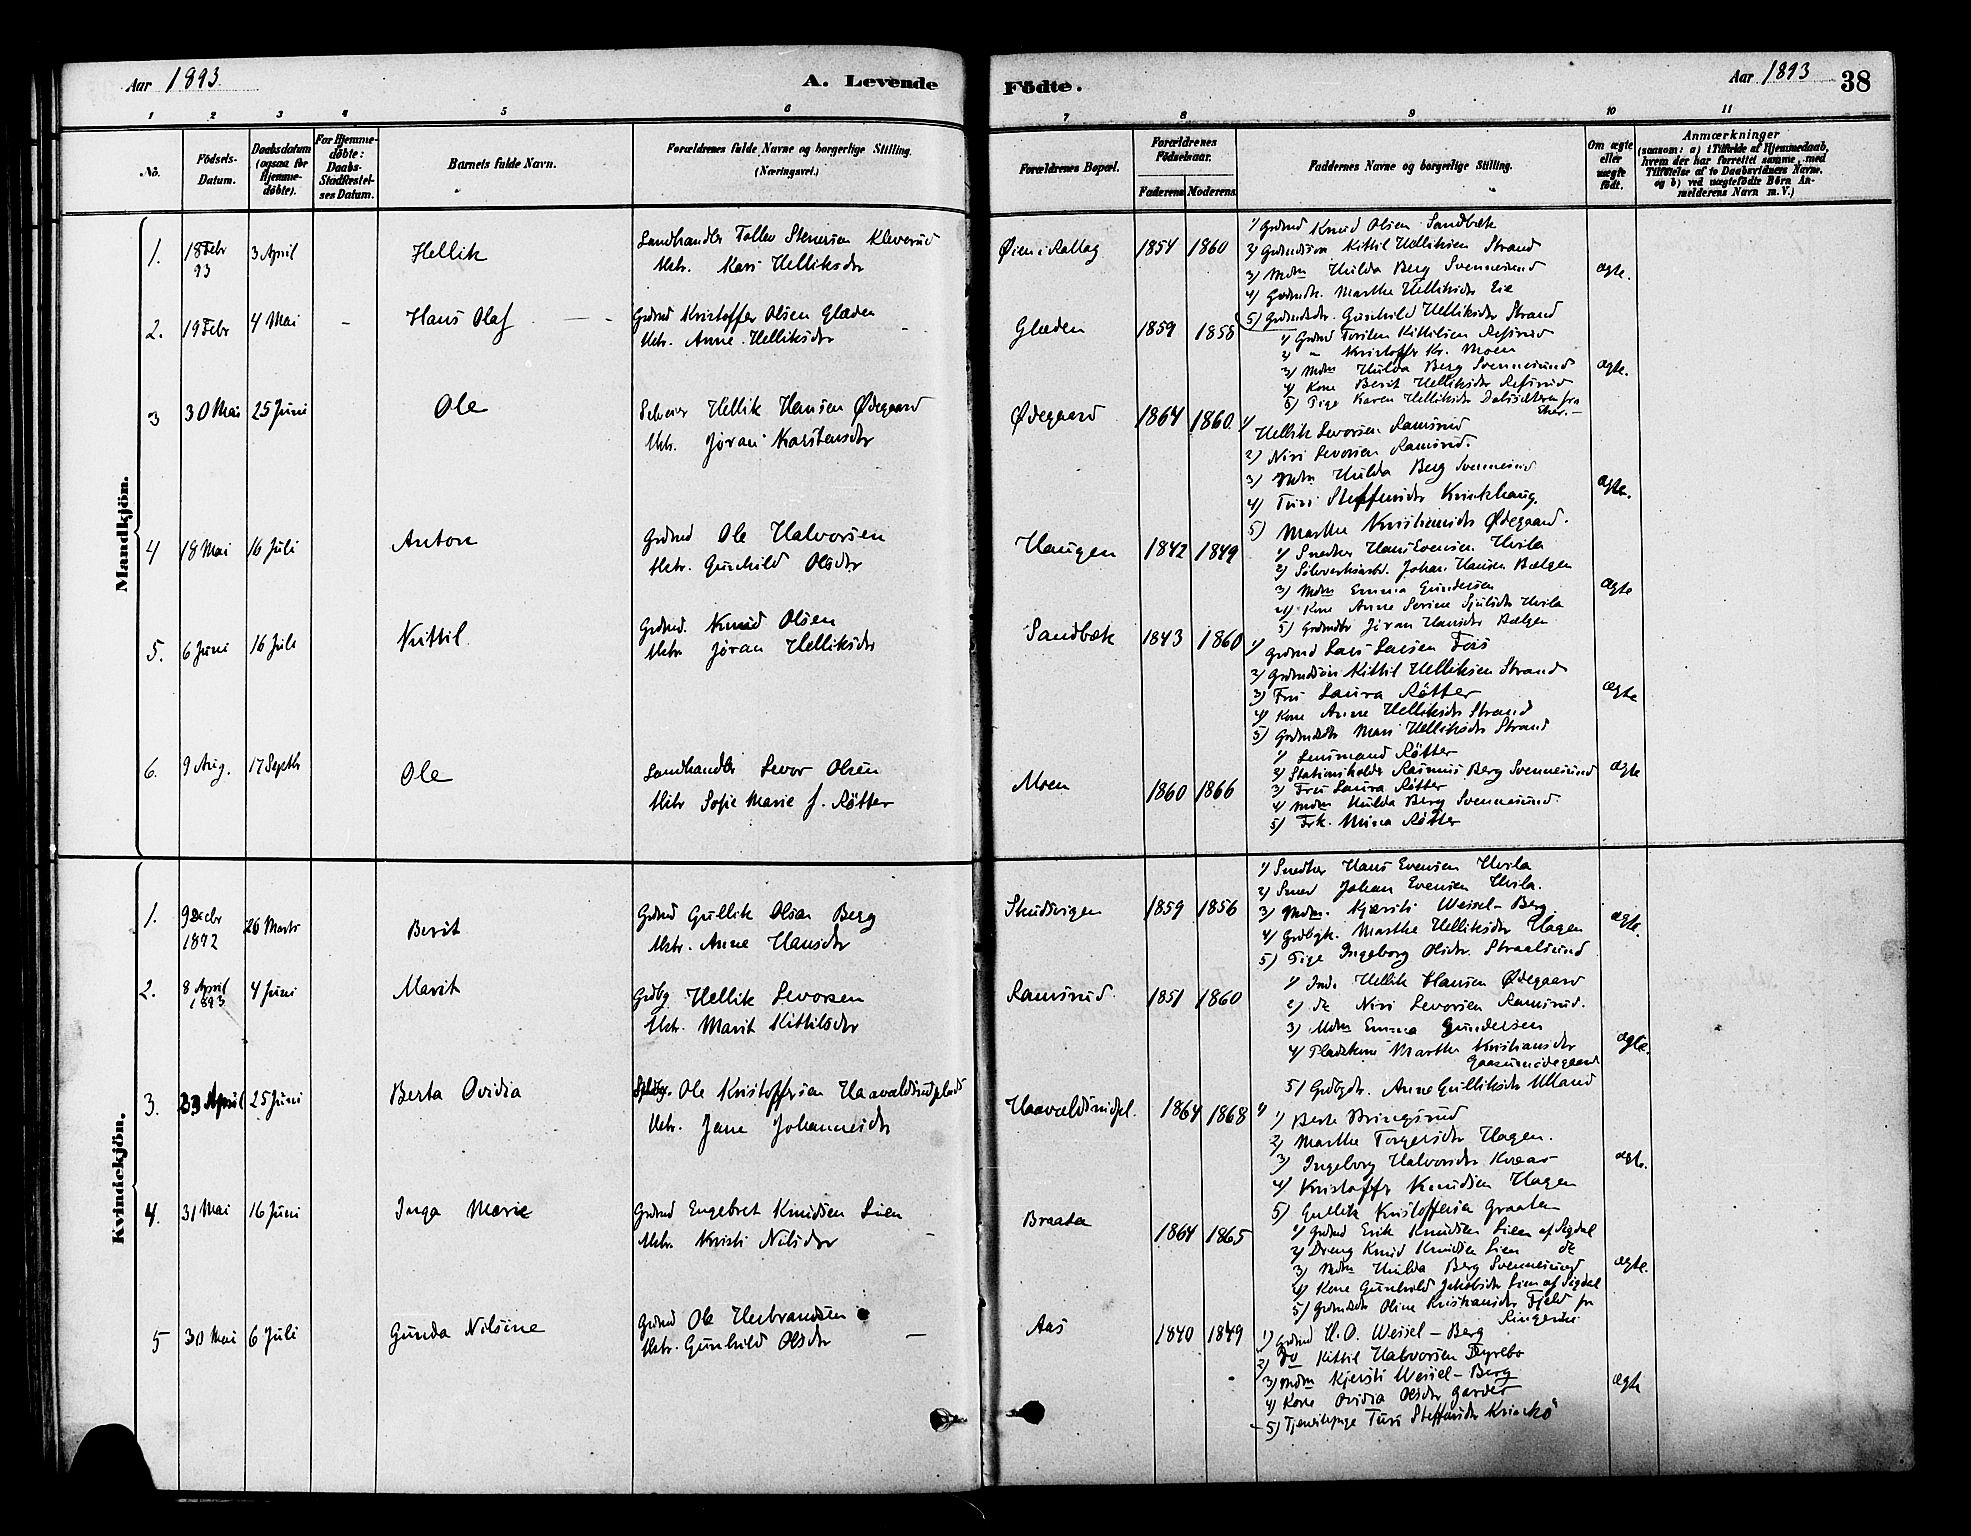 Aar 1893.
A. Levende
Födte.
Aar 1893
38
1 2 3 4 5 6 7 8 9 10 11
No.
Födsels-Datum.
Daabsdatum (ogsaa for Hjemme-döbte).
For Hjemme-döbte: Daabs-Stadfæstel-ses Datum.
Barnets fulde Navn.
Forældrenes fulde Navne og borgerlige Stilling. (Næringsvei.)
Forældrenes Bopæl.
Forældrenes Födselsaar.
Faderens Moderens
Faddernes Navne og borgerlige Stilling.
Om ægte eller uægte födt.
Anmærkninger
(saasom: a) i Tilfælde af Hjemmedaab,
hvem der har forrettet samme, med
Tilföielse af to Daabsvidners Navne,
og b) ved uægtefödte Börn An-
melderens Navn m. V.)
Mandkjön.
1. 18 Febr 93 3 April Hellik
Landhandler Tollev Stenersen Kleverud
Mstr. Kari Helliksdr
Øien i Rollag 1854 1860
1) Grdmd Knud Olsen Sandbæk
2) Grdmdssøn Kittil Helliksen Strand
3) Mdm Hulda Berg Svennesund
4) Grdmdk. Marthe Helliksdr Eie
5) Grdmdsdr. Gunhild Helliksdr Strand
ægte.
2. 19 Febr 4 Mai - Hans Olaf
Grdmd Kristoffer Olsen Glæden
Mstr. Anne Helliksdr
Glæden 1859 1858
1) Grdmd Torsten Kittilsen Refsrud
2) " Kristoffer Kr. Moen
3) Mdm Hulda Berg Svennesund
4) Kone Berit Helliksdr Refsrud
5) Pige Karen Helliksdr
ægte.
3 30 Mai 25 Juni Ole
Hellik Hansen Ødegaard
Mstr. Jøran Karstensdr
Ødegaard 1864 1860
1) Hellik Levorsen Ramsrud
2) Niri Levorsen Ramsrud.
3) Mdm Hulda Berg Svennesund
4) Turi Steffensdr Krinkhaug.
5) Marthe Kristiansdr Ødegaard.
ægte.
4 18 Mai 16 Juli Anton
Grdmd Ole Halvorsen
Mstr. Gunhild Olsdr
Haugen 1842 1849
1) Snedker Hans Evensen Hvila
2) Sølvverksarbd. Johan Hansen Bælgen
3) Mdm Emma Gundersen
4) Kone Anne Serine Hvila
5) Grdmdsdr Jøran Hansdr Bælgen
ægte
5. 6 Juni 16 Juli Kittil
Grdmd. Knud Olsen
Mstr Jøran Helliksdr
Sandbæk 1843 1860
1) Grdmd Lars Larsen Fos
2) Grdmdssøn Kittil Helliksen Strand
3) Fru Laura Røtter
4) Kone Anne Helliksdr Strand
5) Grdmdsdtr Mari Helliksdr Strand
ægte
6. 9 Aug. 17 Septb Ole
Landhandler Levor Olsen
Mstr Sofie Marie f. Røtter
Moen 1860 1866
1) Lensmand Røtter
2) Stationsholder Rasmus Berg Svennesund
3) Fru Laura Røtter
4) Mdm Hulda Berg Svennesund.
5) Frk. Mina Røtter
ægte
Kvindekjön.
1. 9 Decbr 1892 26 Marts Berit
Grdmd Gullik Olsen Berg
Mstr. Anne Hansdr
Skudsvigen 1859 1856
1) Snedker Hans Evensen Hvila
2) Smed Johan Evensen Hvila.
3) Mdm. Kjersti Wessel-Berg
4) Grdbgk. Marthe Helliksdr Hagen
5) Pige Ingeborg Olsdr. Straalsund
ægte.
2. 8 April 1893 4 Juni Marit
Grdbg Hellik Levorsen
Mstr. Marit Kittilsdr
Ramsrud. 1851 1860
1) Inds. Hellik Hansen Ødegaard
2) do Niri Levorsen Ramsrud.
3) Mdm Emma Gundersen
4) Pladskone Marthe Kristiansdr
5) Grdbgdr. Anne Gulliksdr Ulland
ægte.
3. 23 April 25 Juni Berta Ovidia
Ole Kristoffersen Haavaldsrudplads
Mstr. Jane Johannesdr
Haavaldsrudpl. 1864 1868
1) Berte Bringsrud
2) Marthe Torgersdr Hagen.
3) Ingeborg Halvorsdr
4) Kristoffer Knudsen Hagen
5) Gullik Kristoffersen Graaten
ægte.
4. 31 Mai 16 Juni Inga Marie
Grdmd Engebret Knudsen Lien
Mstr. Kristi Nilsdr
Braata 1864 1865
1) Grdmd Erik Knudsen Lien af Sigdal
2) Dreng Knud Knudsen Lien do
3) Mdm Hulda Berg Svennesund
4) Kone Gunhild Jakobsdr Lien af Sigdal
5) Grdmdsdr Oline Kristiansdr Fjeld fr Ringerike
ægte.
5 30 Mai 6 Juli Gunda Nilsine
Grdmd Ole Herbrandsen
Mstr. Gunhild Olsdr
Aas 1840 1849
1) Grdmd H. O. Wessel-Berg
2) do Kittil Halvorsen Fyrebo
3) Mdm Kjersti Wessel-Berg
4) Kone Ovidia Olsdr Garder
5) Tjenestepige Turi Steffensdr
ægte